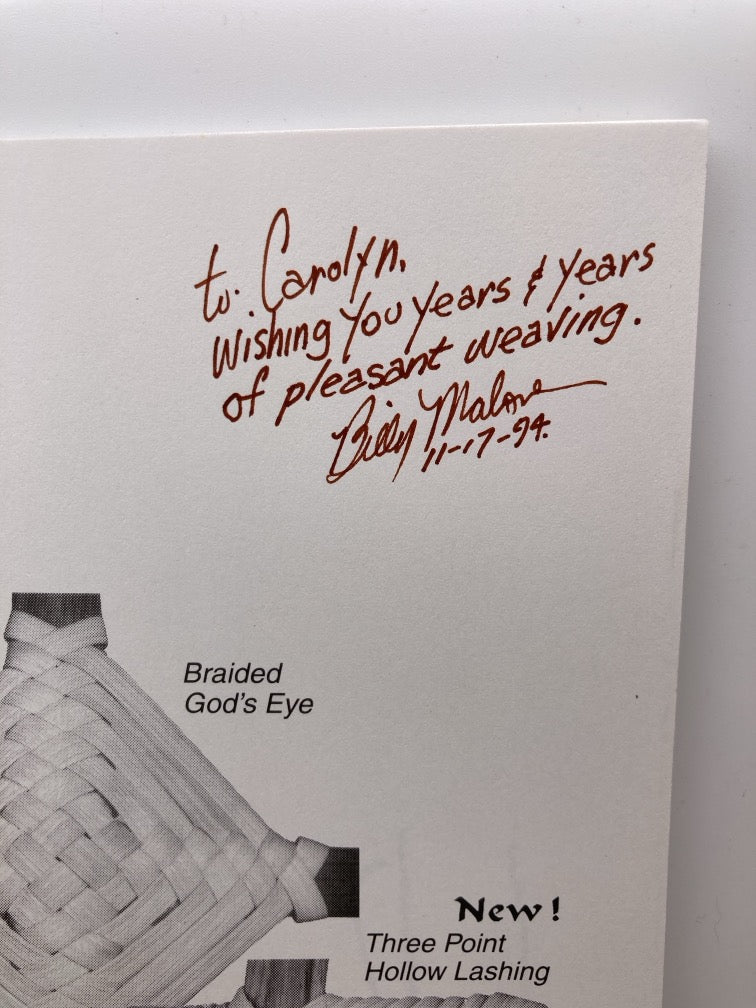 to: Carolyn,
Wishing You Years & Years
of pleasant weaving.
Billy Malone
11-17-94.
Braided
God's Eye
New!
Three Point
Hollow Lashing